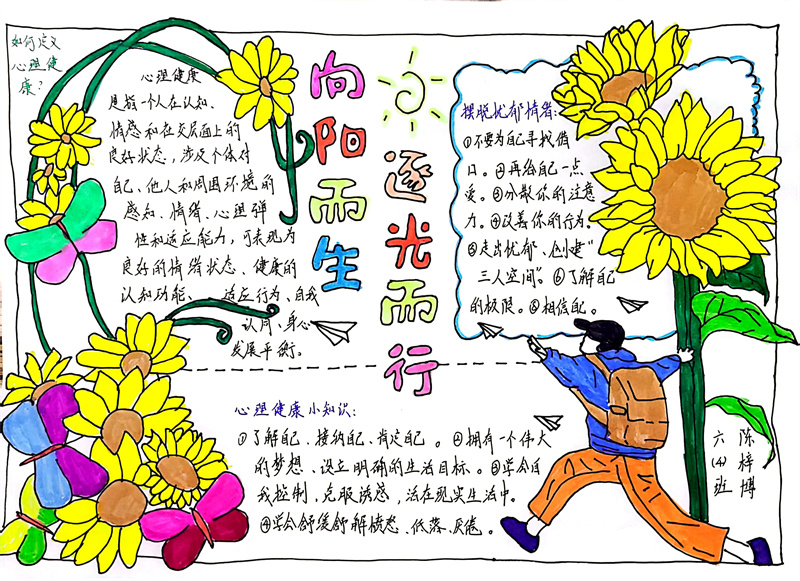 如何定义
心理健
康？
心理健康
是指一个人在认知、
情感和在交层面上的
良好状态，涉及个体对
自己、他人和周围环境的
感知、情绪、心理弹
性和适应能力，可表现为
良好的情绪状态、健康的
认知功能、适应行为、自我
认同、身心
发展平衡。
向阳而生
逐光而行
摆脱忧郁情绪：
①不要为自己寻找借
口。②再给自己一点
爱。③分散你的注意
力。④改善你的行为。
⑤走出忧郁、创建“
三人空间”。⑥了解自己
的极限。⑧相信自己。
心理健康小知识：
①了解自己、接纳自己、肯定自己。②拥有一个伟大
的梦想、设立明确的生活目标。③学会自
我控制，克服诱惑，活在现实生活中。
④学会舒缓舒解愤怒、低落、厌倦。
六(4)班
陈梓博